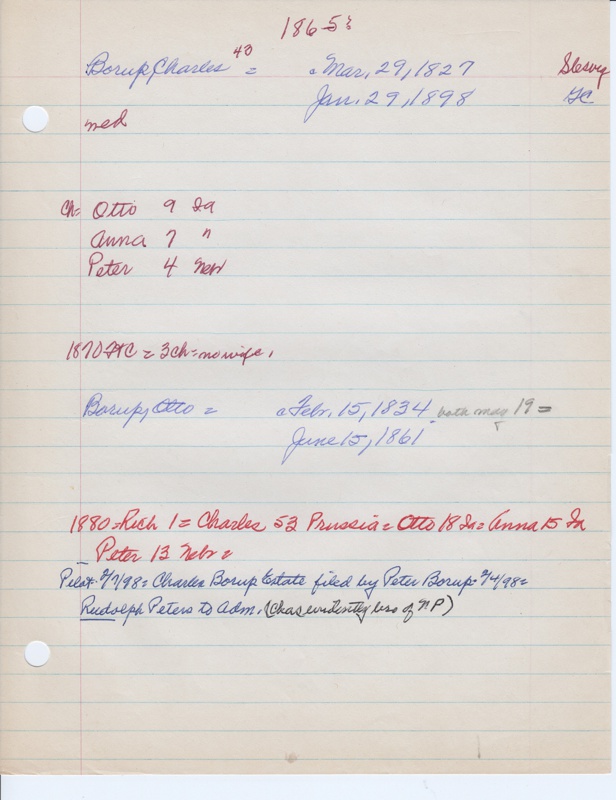 186-5
43
Borup, Charles = Mar. 29, 1827 Slesvig
Jan. 29, 1898 GC
med
Ch= Otto 9 Ia
Anna 7 "
Peter 4 Nebr
1870 = 3 ch = no wife.
Borup, Otto = Febr. 15, 1834 both may 19=
June 15, 1861
1880=Rich 1= Charles 53 Prussia= Otto 18 Ia= Anna 15 Ia
Peter 13 Nebr=
Pilot 2/7/98= Charles Borup Estate filed by Peter Borup= 2/4/98=
Rudolph Peters to adm. (Chas evidently bro of P)